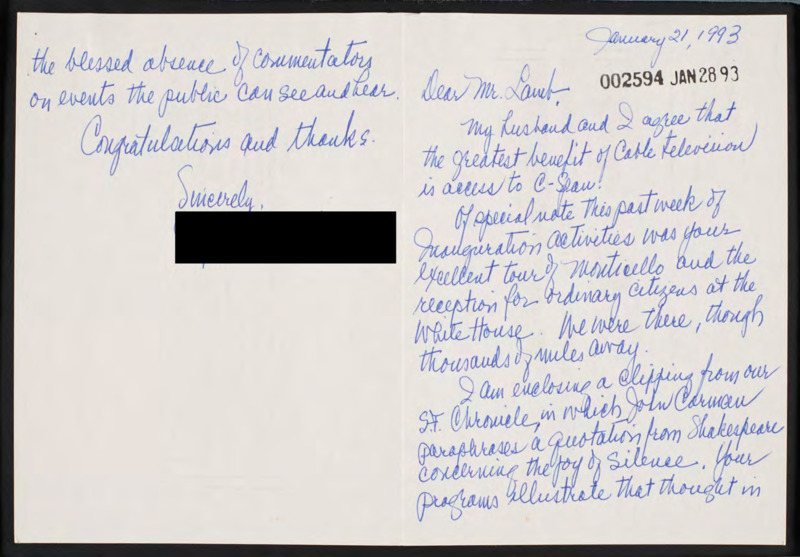 January 21, 1993
002594 JAN 28 93
Dear Mr. Lamb,
My husband and I agree that
the greatest benefit of Cable Television
is access to C-Span!
Of special note this past week of
Inauguration activities was your
excellent tour of Monticello and the
reception for ordinary citizens at the
White House. We were there, though
thousands of miles away.
I am enclosing a clipping from our
S.F. Chronicle, in which John Carman
paraphrases a quotation from Shakespeare
concerning the joy of silence. Your
programs illustrate that thought in
the blessed absence of commentators
on events the public can see and hear.
Congratulations and thanks.
Sincerely,